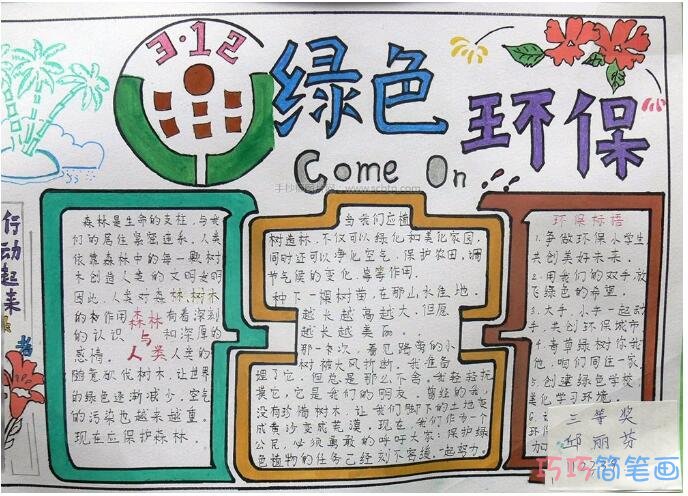 3·12
绿色
环保
Come On
手抄报网 www.scbtp.com
行动起来
森林是生命的支柱,与我
们的居住紧密连系,人类
依靠森林中的每一颗树
木创造人类的文明,文明
因此,人类对森林,树木
的和作用 有着深刻
的认识 和深厚的
感情, 人类的
随意砍伐树木,让世界
的绿色逐渐减少,空气
的污染也越来越重。
现在应保护森林。
森林
与
人类
当我们应植
树造林,不仅可以绿化和美化家园,
同时还可以净化空气、保护农田、调
节气候的变化、等作用。
种下一棵树苗,在那山水佳地,
越长越高越大,但愿
越长越美丽。
那一次,看见路旁的小
树被大风折断。我准备
埋了它,但总是那么不舍。我轻轻抚
摸它,它是我们的朋友,曾经的我
没有珍惜树木,让我们脚下的土地变
成黄沙变成荒漠。现在,我们作为一个
公民,必须勇敢的呼吁大家,保护绿
色植物的任务已经刻不容缓,一起努力。
环保标语
1.争做环保小学生
共创美好未来。
2.用我们的双手放
飞绿色的希望。
3.大手,小手一起动
手,共创环保城市。
4.奇草绿树你我
他,咱们同住一家。
5.创建绿色学校,
美化学习环境。
6.
环保
加
三等奖
邱丽芬
巧巧简笔画